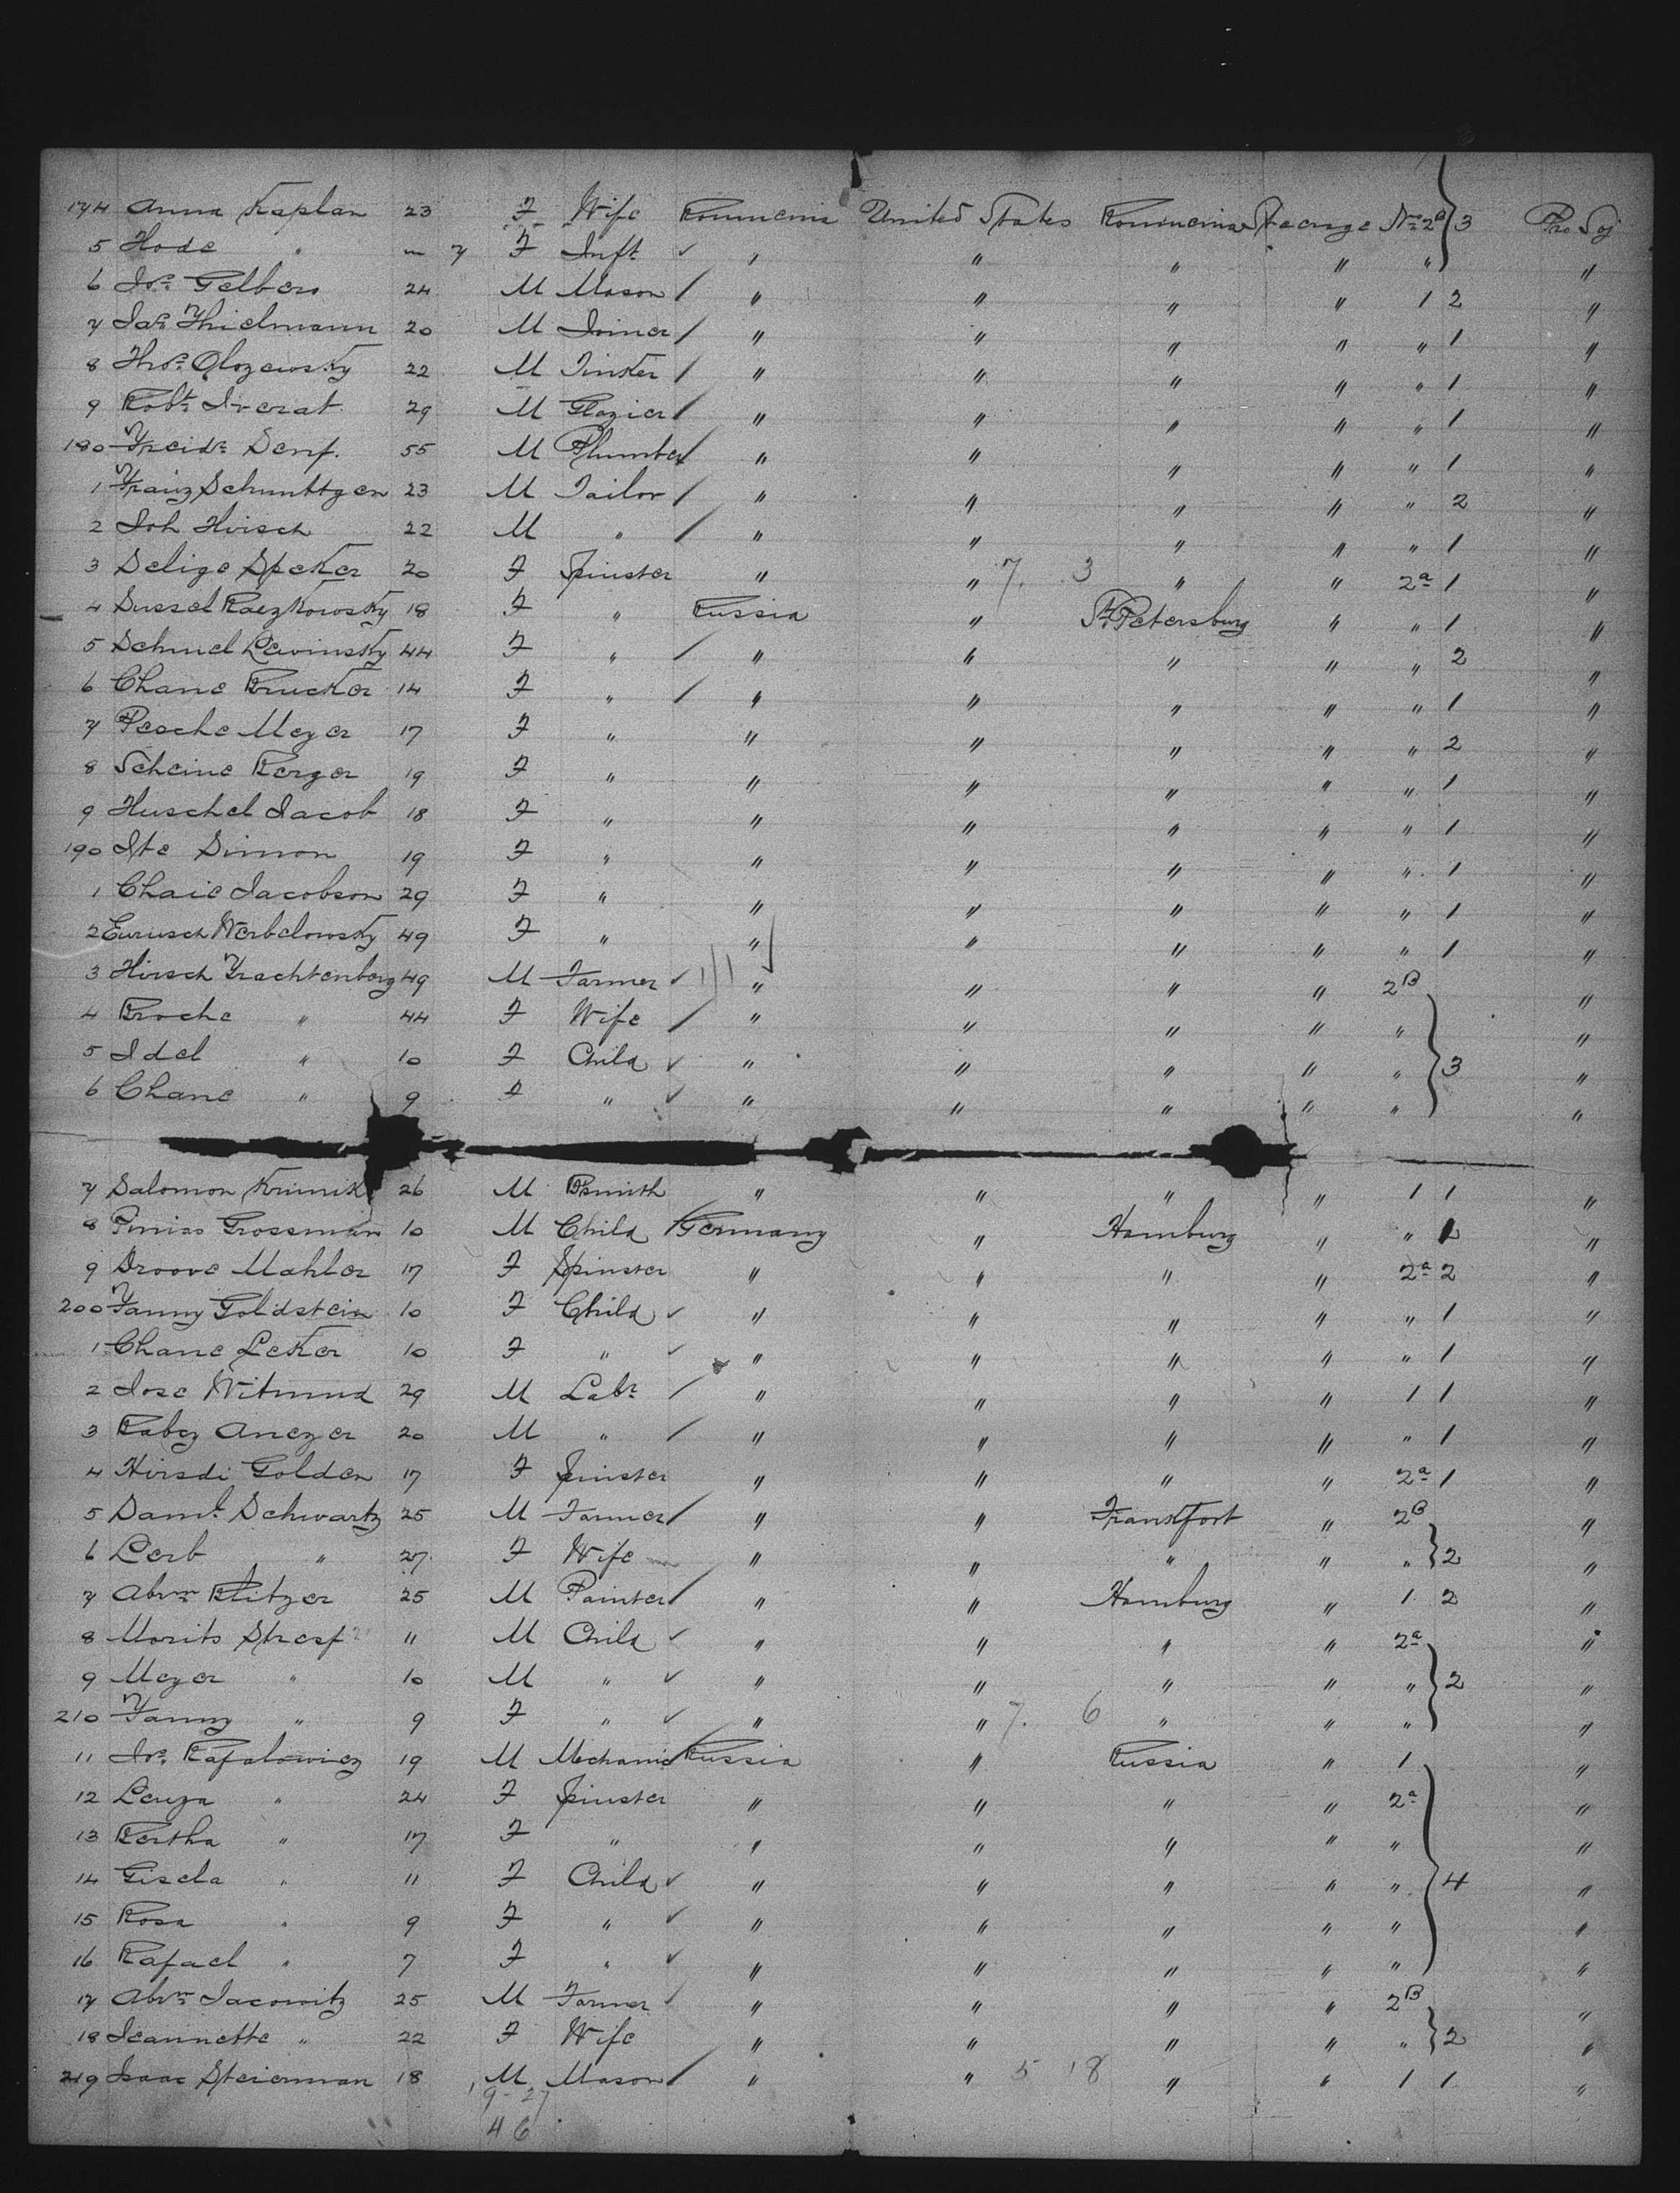 174 Anna Kaplan 23 F Wife Roumenia United States Roumenia Steerage No 2B 3 Pro Soj
5 Hode " — 7 F Inft ✓ " " " " " "
6 Jos. Gelbers 24 M Mason / " " " " 1 2 "
7 Jas. Thielmann 20 M Joiner / " " " " " 1 "
8 Thos. Olozewsky 22 M Tinker / " " " " " 1 "
9 Robt. 29 M Glazier / " " " " " 1 "
180 Freidr. Senf. 55 M Plumber / " " " " " 1 "
1 Franz Schunttgen 23 M Tailor / " " " " " 2 "
2 Joh Hirsch 22 M " / " " " " " 1 "
3 Selige Speker 20 F Spinster " " 7. 3 " " 2a 1 "
4 Sussel Raezkowsky 18 F " Russia " St. Petersburg " " 1 "
5 Schmel Lewinsky 44 F " / " " " " " 2 "
6 Chane Brucker 14 F " / " " " " " 1 "
7 Pesche Meyer 17 F " " " " " " 2 "
8 Scheine Berger 19 F " " " " " " 1 "
9 Huschel Jacob 18 F " " " " " " 1 "
190 Ite Simon 19 F " " " " " " 1 "
1 Chaie Jacobson 29 F " " " " " " 1 "
2 Eurusch Werbelowsky 49 F " " " " " " 1 "
3 Hirsch Trachtenberg 49 M Farmer ✓ " " " " 2B "
4 Broche " 44 F Wife / " " " " " "
5 Idel " 10 F Child ✓ " " " " " 3 "
6 Chane " 9 F " ✓ " " " " " "
7 Salomon Krimik 26 M Bsmith " " " " 1 1 "
8 Pinias Grossman 10 M Child Germany " Hamburg " " "
9 Droove Mahler 17 F Spinster " " " " 2a 2 "
200 Fanny Goldstein 10 F Child ✓ " " " " " 1 "
1 Chane Leker 10 F " ✓ " " " " " 1 "
2 Jose Witmund 29 M Labr. / " " " " 1 1 "
3 Rabez Anezer 20 M " / " " " " " 1 "
4 Hirsdi Golden 17 F Spinster " " " " 2a 1 "
5 Saml. Schwartz 25 M Farmer / " " Frankfort " 2B "
6 Lerb " 27 F Wife " " " " " 2 "
7 Abrm. Blitzer 25 M Painter / " " Hamburg " 1 2 "
8 Morits 11 M Child ✓ " " " " 2a "
9 Meyer " 10 M " ✓ " " " " " 2 "
210 Fanny " 9 F " ✓ " " 7. 6 " " " "
11 Jos. Rafalowicz 19 M Mechanic Russia " Russia " 1 "
12 Leuza " 24 F Spinster " " " " 2a "
13 Bertha " 17 F " " " " " " "
14 Gisela " 11 F Child ✓ " " " " " 4 "
15 Rosa " 9 F " ✓ " " " " " "
16 Rafael " 7 F " ✓ " " " " " "
17 Abrm. Jacowitz 25 M Farmer ✓ " " " " 2B "
18 Jeannette " 22 F Wife " " " " " 2 "
219 Isaac Steierman 18 M Mason / " " 5 18 " " 1 1 "
19-27
46